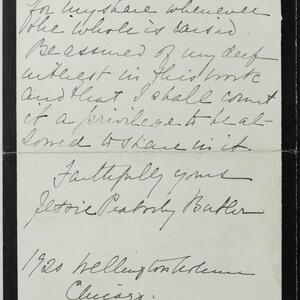 for my share whenever
the whole is raised.
Be assured of my deep
interest in this work
and that I shall count
it a privilege to be al-
lowed to share in it.
Faithfully yours
Jessie Peabody Butler
1920 Wellington Avenue
Chicago.